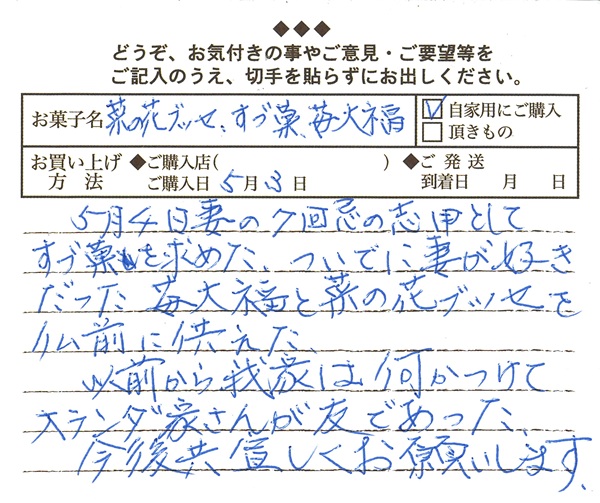 ◆◆◆
どうぞ、お気付きの事やご意見・ご要望等を
ご記入のうえ、切手を貼らずにお出しください。
お菓子名 菜の花ブッセ、すづ菓、苺大福 ☑自家用にご購入
□頂きもの
お買い上げ方法 ◆ご購入店( ) ◆ご発送
ご購入日 5月3日 到着日 月 日
5月4日妻の7回忌の志用として
すづ菓を求めた、ついでに妻が好き
だった苺大福と菜の花ブッセを
仏前に供えた、
以前から我家は何かつけて
大ランダ家さんが友であった、
今後共宜しくお願いします、